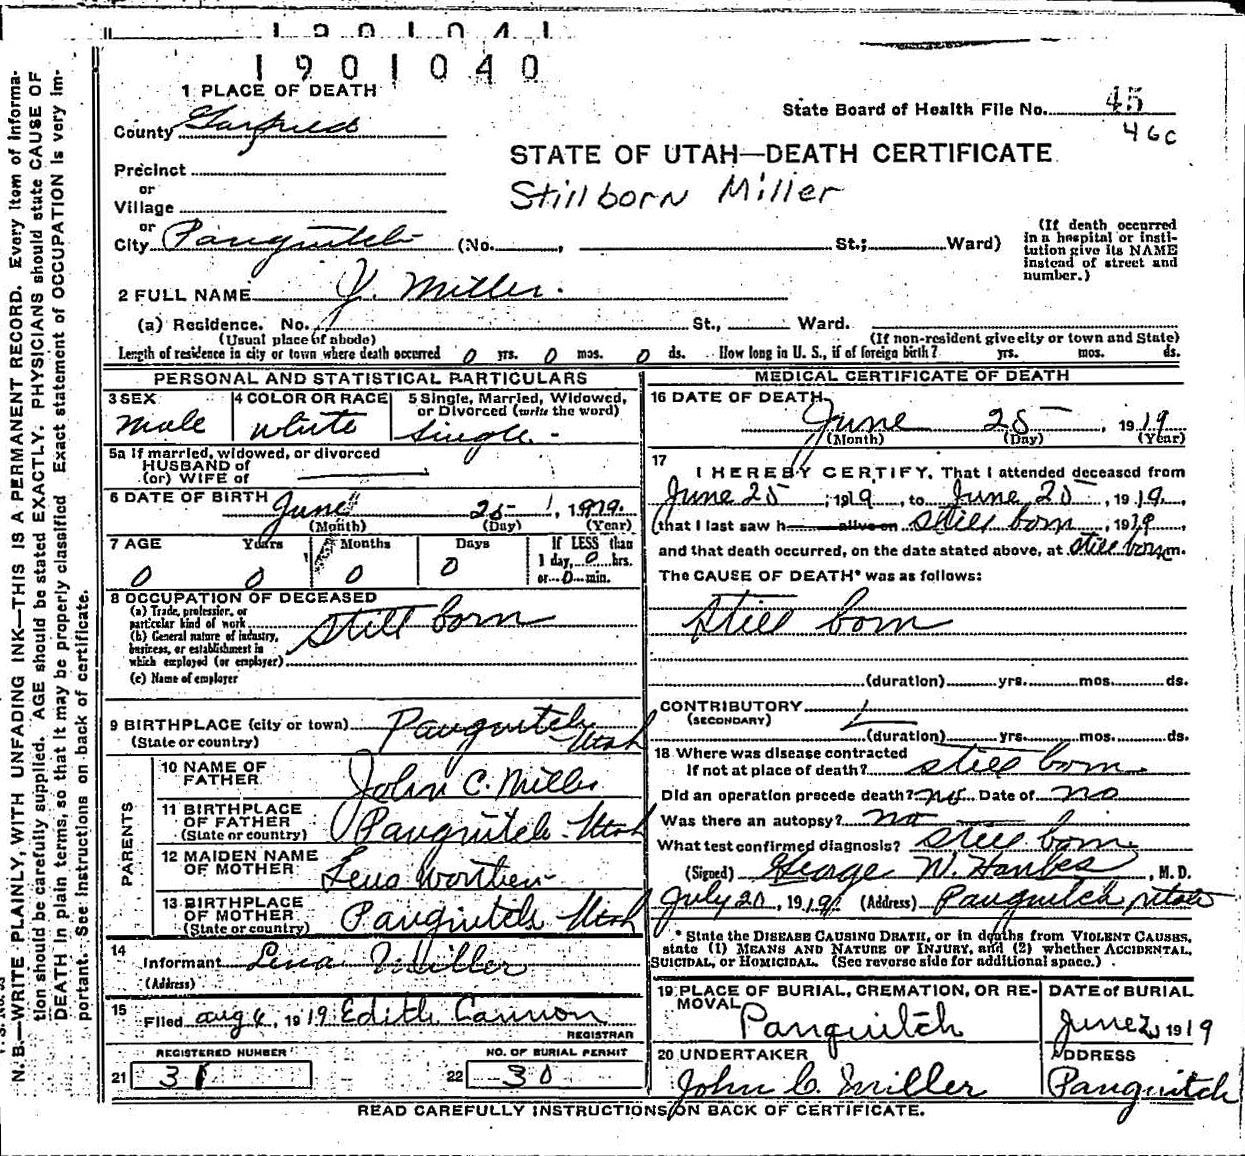 1901041
1901040
1 PLACE OF DEATH
State Board of Health File No. 45
46c
County Garfield
STATE OF UTAH—DEATH CERTIFICATE
Precinct
Stillborn Miller
or
Village
or
City Panguitch (No. , St.; Ward)
(If death occurred in a hospital or institution give its NAME instead of street and number.)
2 FULL NAME Y. Miller.
(a) Residence. No. St., Ward.
(Usual place of abode) (If non-resident give city or town and State)
Length of residence in city or town where death occurred 0 yrs. 0 mos. 0 ds. How long in U. S., if of foreign birth? yrs. mos. ds.
PERSONAL AND STATISTICAL PARTICULARS
3 SEX 4 COLOR OR RACE 5 Single, Married, Widowed,
or Divorced (write the word)
male white Single.
5a If married, widowed, or divorced
HUSBAND of
(or) WIFE of
6 DATE OF BIRTH June 25, 1919.
(Month) (Day) (Year)
7 AGE Years Months Days If LESS than
1 day, 0 hrs.
or 0 min.
0 0 0 0
8 OCCUPATION OF DECEASED
(a) Trade, profession, or
particular kind of work
still born
(b) General nature of industry,
business, or establishment in
which employed (or employer)
(c) Name of employer
9 BIRTHPLACE (city or town) Panguitch
(State or country) Utah
PARENTS
10 NAME OF
FATHER John C. Miller
11 BIRTHPLACE
OF FATHER
(State or country) Panguitch Utah
12 MAIDEN NAME
OF MOTHER Lena Worthen
13 BIRTHPLACE
OF MOTHER
(State or country) Panguitch Utah
14
Informant Lena Miller
(Address)
15
Filed Aug 4, 1919 Edith Cannon
REGISTRAR
REGISTERED NUMBER NO. OF BURIAL PERMIT
21 31 22 30
MEDICAL CERTIFICATE OF DEATH
16 DATE OF DEATH
June 25, 1919
(Month) (Day) (Year)
17
I HEREBY CERTIFY, That I attended deceased from
June 25, 1919, to June 25, 1919.
(that I last saw h alive on still born, 1919
and that death occurred, on the date stated above, at still born m.
The CAUSE OF DEATH* was as follows:
still born
(duration) yrs. mos. ds.
CONTRIBUTORY
(SECONDARY)
(duration) yrs. mos. ds.
18 Where was disease contracted
If not at place of death? still born.
Did an operation precede death? no Date of no
Was there an autopsy? no
What test confirmed diagnosis? still born.
(Signed) George W. , M. D.
July 20, 1919 (Address) Panguitch
* State the DISEASE CAUSING DEATH, or in deaths from VIOLENT CAUSES,
state (1) MEANS AND NATURE OF INJURY, and (2) whether ACCIDENTAL,
SUICIDAL, or HOMICIDAL. (See reverse side for additional space.)
19 PLACE OF BURIAL, CREMATION, OR RE-
MOVAL
Panguitch
DATE of BURIAL
June 1919
20 UNDERTAKER
John C. Miller
ADDRESS
Panguitch
READ CAREFULLY INSTRUCTIONS ON BACK OF CERTIFICATE.
N. B.—WRITE PLAINLY, WITH UNFADING INK—THIS IS A PERMANENT RECORD. Every item of Informa-
tion should be carefully supplied. AGE should be stated EXACTLY. PHYSICIANS should state CAUSE OF
DEATH in plain terms, so that it may be properly classified. Exact statement of OCCUPATION is very im-
portant. See instructions on back of certificate.